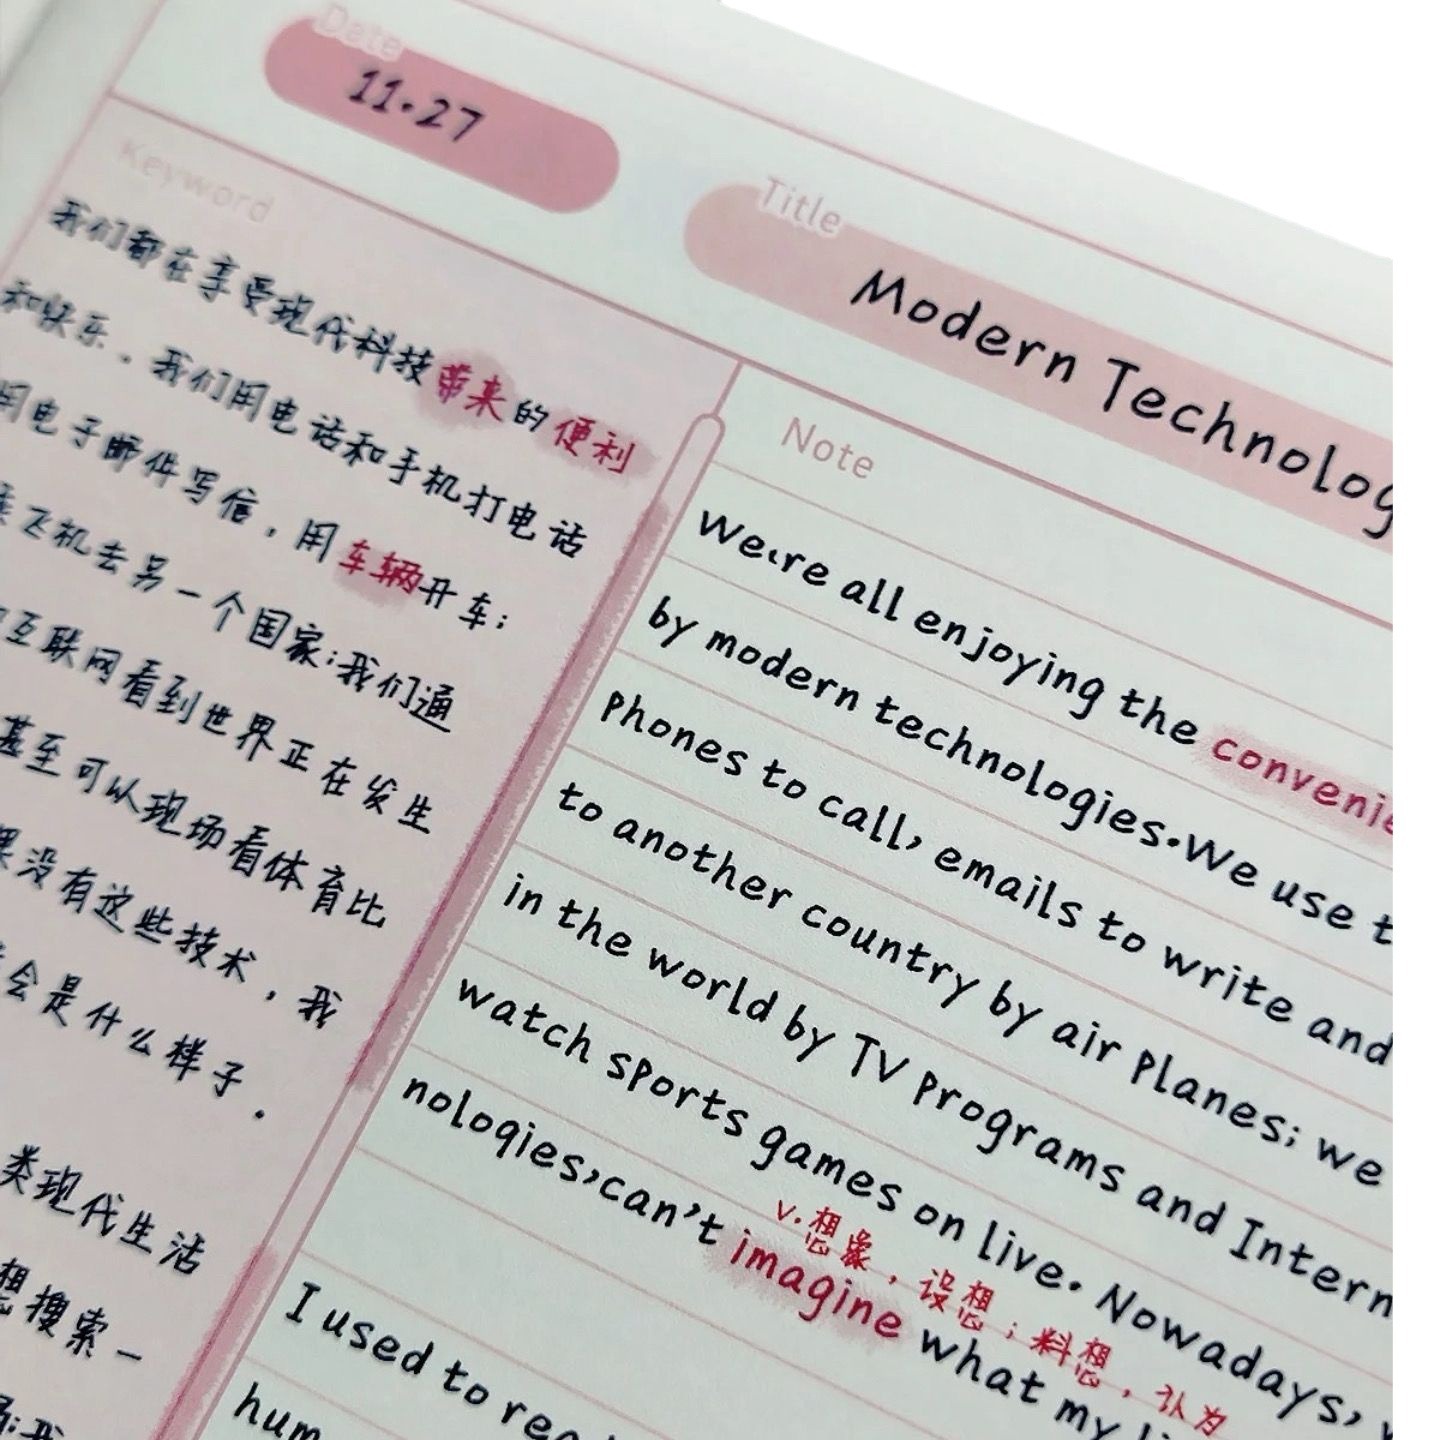 Date
11.27
Title
Modern Technolog
Keyword
我们都在享受现代科技带来的便利
和快乐．我们用电话和手机打电话
用电子邮件写信，用车辆开车；
飞机去另一个国家；我们通
互联网看到世界正在发生
甚至可以现场看体育比
没有这些技术，我
会是什么样子．
类现代生活
想搜索一
Note
We're all enjoying the
by modern technologies.We use
Phones to call, emails to write and
to another country by air Planes; we
in the world by TV Programs and
watch sports games on live. Nowadays,
v.想象，设想；料想，认为
nologies,can't imagine what my
I used to